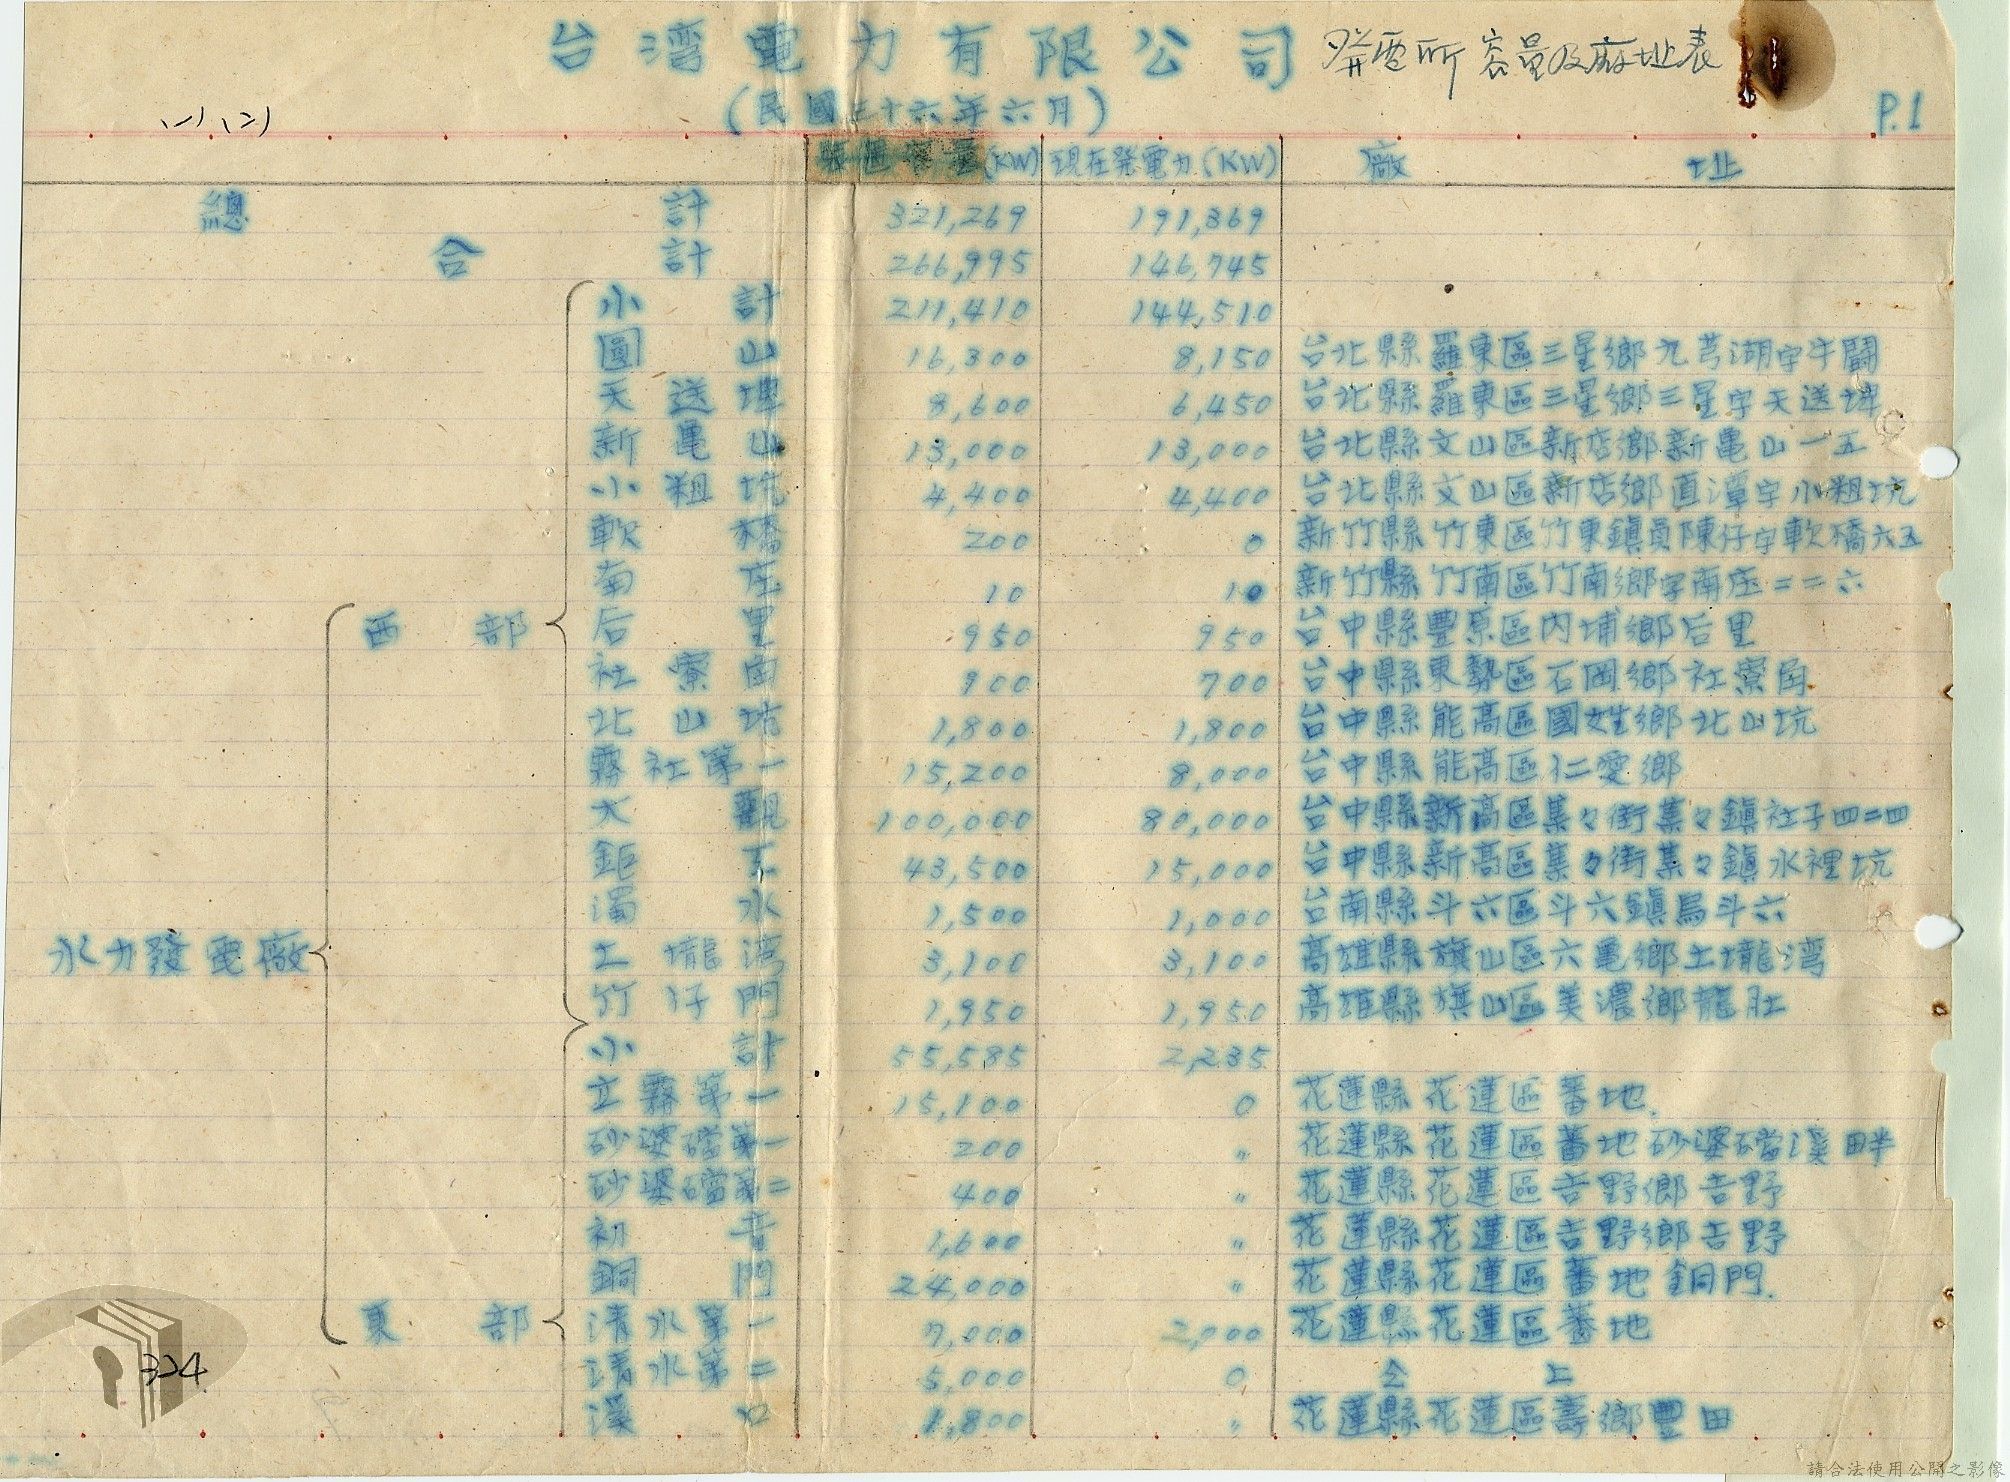 台湾電力有限公司 發電所容量及廠址表
(民國三十六年六月)
(一)(二)
P.1
(KW) 現在發電力(KW) 廠址
總計 321,269 191,369
合計 266,995 146,745
小計 211,410 144,510
圓山 16,300 8,150 台北縣羅東區三星鄉九芎湖字牛鬪
天送埤 8,600 6,450 台北縣羅東區三星鄉三星字天送埤
新亀山 13,000 13,000 台北縣文山區新店鄉新亀山一五
小粗坑 4,400 4,400 台北縣文山區新店鄉直潭字小粗坑
軟橋 200 0 新竹縣竹東區竹東鎮員陳仔字軟橋六五
南庄 10 10 新竹縣竹南區竹南鄉字南庄二二六
后里 950 950 台中縣豐原區內埔鄉后里
西部
社寮角 900 700 台中縣東勢區石岡鄉社寮角
北山坑 1,800 1,800 台中縣能高區國姓鄉北山坑
霧社第一 15,200 8,000 台中縣能高區仁愛鄉
大觀 100,000 80,000 台中縣新高區集々街集々鎮社子四二四
鉅工 43,500 15,000 台中縣新高區集々街集々鎮水裡坑
濁水 1,500 1,000 台南縣斗六區斗六鎮烏斗六
水力發電廠
土壠湾 3,100 3,100 高雄縣旗山區六亀鄉土壠湾
竹仔門 1,950 1,950 高雄縣旗山區美濃鄉龍肚
小計 55,585 2,235
立霧第一 15,100 0 花蓮縣花蓮區蕃地.
砂婆礑第一 200 〃 花蓮縣花蓮區蕃地砂婆礑溪畔
砂婆礑第二 400 〃 花蓮縣花蓮區吉野鄉吉野
初音 1,600 〃 花蓮縣花蓮區吉野鄉吉野
銅門 24,000 〃 花蓮縣花蓮區蕃地銅門.
東部
清水第一 7,000 2,000 花蓮縣花蓮區蕃地
清水第二 5,000 0 仝上
溪口 1,800 〃 花蓮縣花蓮區壽鄉豐田
324
請合法使用公開之影像